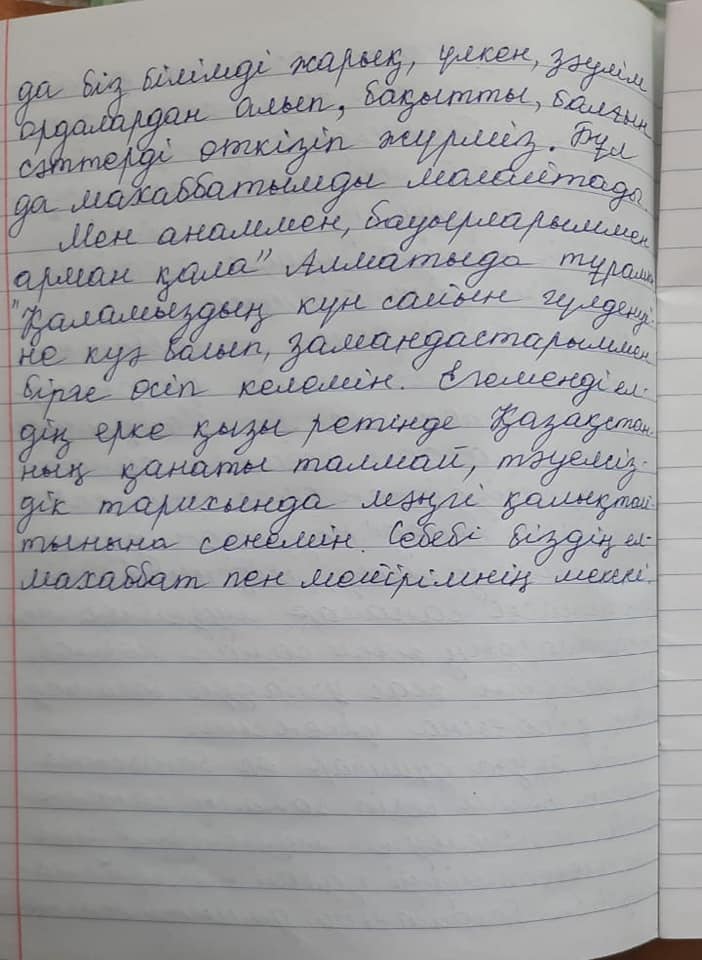 да біз білімді жарық, үлкен, зәулім
ордалардан алып, бақытты, балғын
сәттерді өткізіп жүрміз. Бұл
да махаббатымды молайтады.
Мен анаммен, бауырларыммен
арман қала" Алматыда тұрамын
"Қаламыздың күн сайын гүлденуі-
не куә болып, замандастарыммен
бірге өсіп келемін. Егеменді ел-
дің ерке қызы ретінде Қазақстан-
ның қанаты талмай, тәуелсіз-
дік тарихында мәңгі қалықтай-
тынына сенемін. Себебі біздің ел-
махаббат пен мейірімнің мекені.